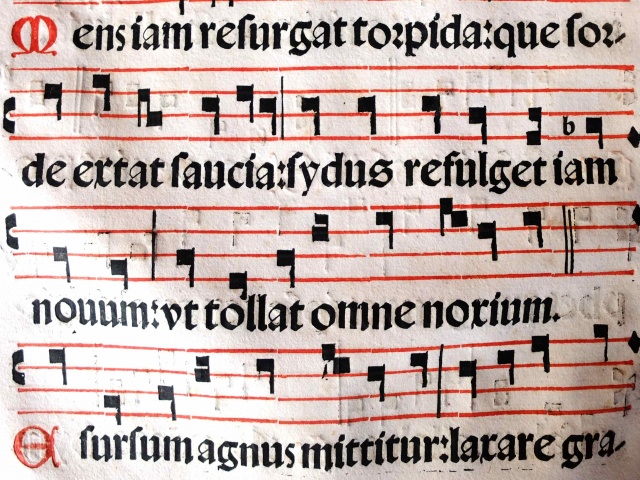 Mens iam resurgat torpida:que sor-
de extat saucia:sydus refulget iam
nouum:vt tollat omne noxium.
E sursum agnus mittitur:laxare gra-